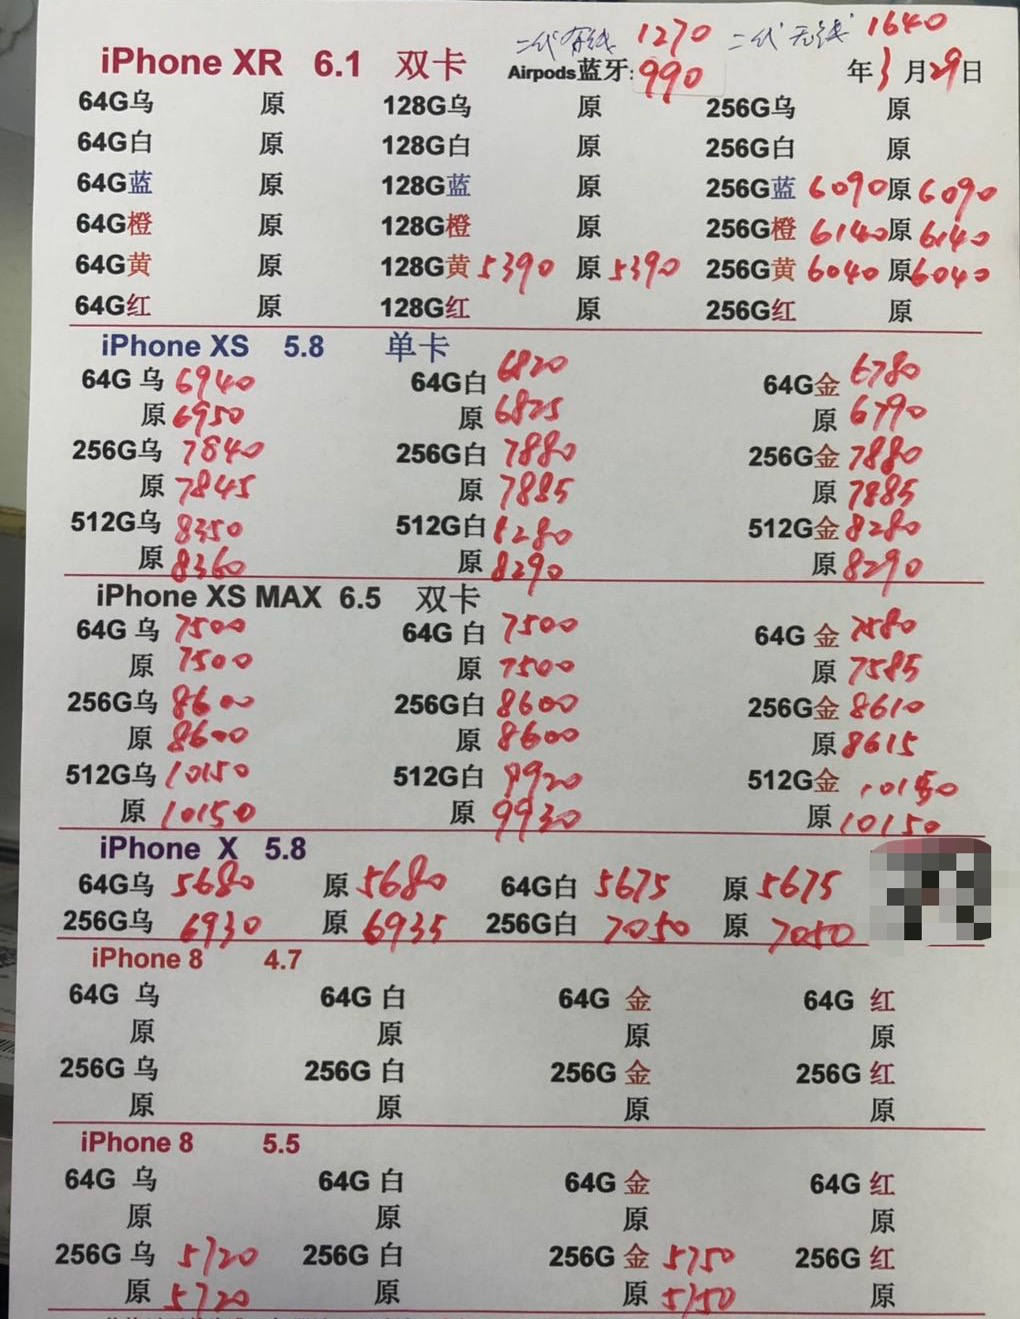 二代有线 1270 二代无线 1640
iPhone XR 6.1 双卡 Airpods蓝牙: 990 年3月29日
64G乌 原 128G乌 原 256G乌 原
64G白 原 128G白 原 256G白 原
64G蓝 原 128G蓝 原 256G蓝 6090 原 6090
64G橙 原 128G橙 原 256G橙 6140 原 6140
64G黄 原 128G黄 5390 原 5390 256G黄 6040 原 6040
64G红 原 128G红 原 256G红 原
iPhone XS 5.8 单卡
64G 乌 6940 64G白 6820 64G金 6780
原 6950 原 6825 原 6790
256G乌 7840 256G白 7880 256G金 7880
原 7845 原 7885 原 7885
512G乌 8350 512G白 8280 512G金 8280
原 8360 原 8290 原 8290
iPhone XS MAX 6.5 双卡
64G 乌 7500 64G 白 7500 64G 金 7580
原 7500 原 7500 原 7585
256G乌 8600 256G白 8600 256G金 8610
原 8600 原 8600 原 8615
512G乌 10150 512G白 9920 512G金 10150
原 10150 原 9930 原 10150
iPhone X 5.8
64G乌 5680 原 5680 64G白 5675 原 5675
256G乌 6930 原 6935 256G白 7050 原 7050
iPhone 8 4.7
64G 乌 64G 白 64G 金 64G 红
原 原 原 原
256G 乌 256G 白 256G 金 256G 红
原 原 原 原
iPhone 8 5.5
64G 乌 64G 白 64G 金 64G 红
原 原 原 原
256G 乌 5720 256G 白 256G 金 5750 256G 红
原 5720 原 原 5750 原